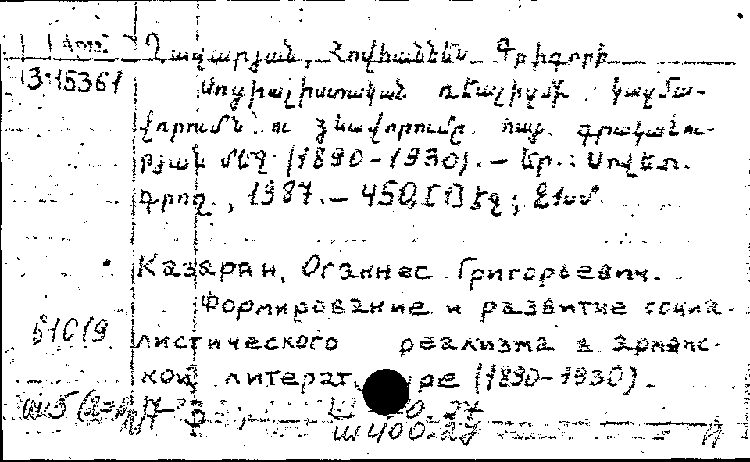 Ղազարյան, Հովհաննես Գրիգորի
3:15361 Սոցիալիստական ռեալիզմի կազմա-
վորումն ու զևավորումը հայ գրականու-
թյան մեջ (1890-1930). — Եր.: Սովետ.
գրող, 1987. — 450 էջ; 21սմ
Казарян, Оганнес Григорьевич.
Формирование и развитие социа-
листического реализма в армянс-
кой литерат ре (1890-1930).
Ш400.27